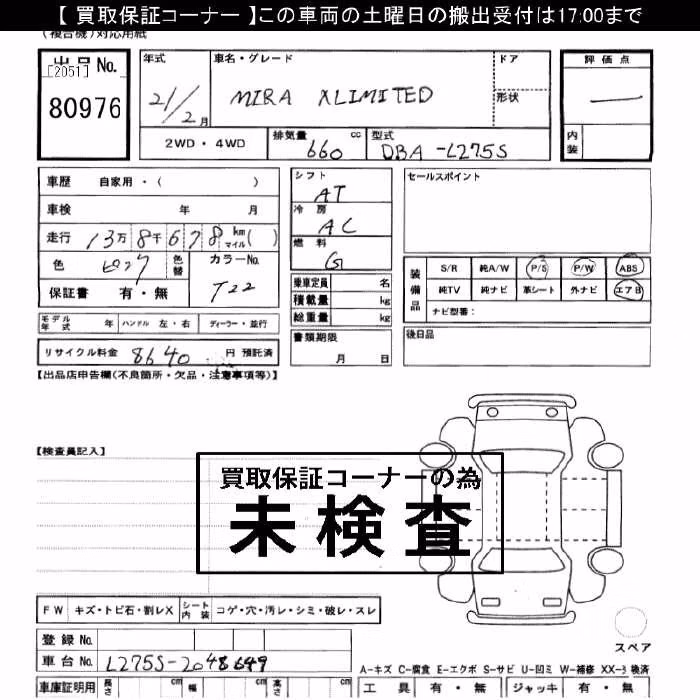 【 買取保証コーナー 】この車両の土曜日の搬出受付は17:00まで
(複合機)対応用紙
出品No.
[2051]
80976
年式
21/2月
車名・グレード
MIRA XLIMITED
ドア
形状
評価点
内装
2WD・4WD
排気量 660 cc
型式 DBA-L275S
車歴 自家用・( )
車検 年 月
走行 13万8千678 km マイル( )
色 ピンク 色替
カラーNo. T22
保証書 有・無
シフト AT
冷房 AC
燃料 G
乗車定員 名
積載量 kg
総重量 kg
セールスポイント
装備品
S/R 純A/W P/S P/W ABS
純TV 純ナビ 革シート 外ナビ エアB
ナビ型番:
モデル年式 年 ハンドル 左・右 ディーラー・並行
書類期限 月 日
後日品
リサイクル料金 8640 円 預託済
【出品店申告欄(不良箇所・欠品・注意事項等)】
【検査員記入】
買取保証コーナーの為
未検査
FW キズ・トビ石・割レX シート内装 コゲ・穴・汚レ・シミ・破レ・スレ
登録No.
車台No. L275S-2048649
スペア
A-キズ C-腐食 E-エクボ S-サビ U-凹ミ W-補修 XX-交換済
車庫証明用 長さ cm 幅 cm 高さ cm
工具 有・無 ジャッキ 有・無